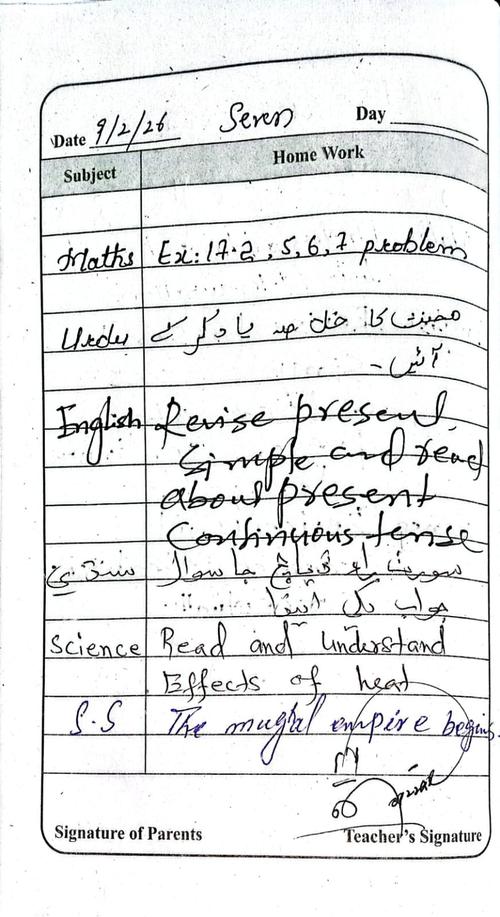 Date 9/2/26 Seven Day
Subject Home Work
Maths Ex: 17.2, 5, 6, 7 problem
Urdu محبت کا خلاصہ یاد کر کے
آئیں -
English Revise present
Simple and read
about present
Continuous tense
سنڌي جا سوال
جواب
Science Read and understand
Effects of heat
S.S The mugal empire begins.
Signature of Parents Teacher's Signature